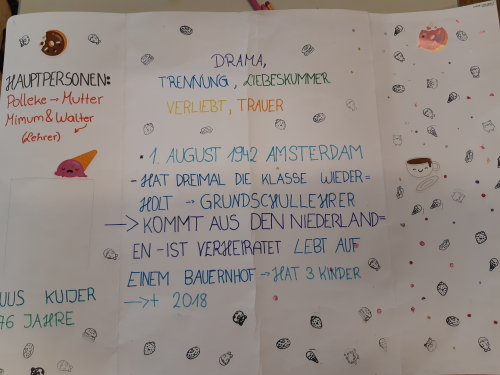 HAUPTPERSONEN:
Polleke → Mutter
Mimum & Walter
(Lehrer)
UUS KUIJER
76 JAHRE
DRAMA,
TRENNUNG, LIEBESKUMMER
VERLIEBT, TRAUER
• 1. AUGUST 1942 AMSTERDAM
- HAT DREIMAL DIE KLASSE WIEDER=
HOLT → GRUNDSCHULLEHRER
→ KOMMT AUS DEN NIEDERLAND=
EN - IST VERHEIRATET LEBT AUF
EINEM BAUERNHOF → HAT 3 KINDER
→ † 2018